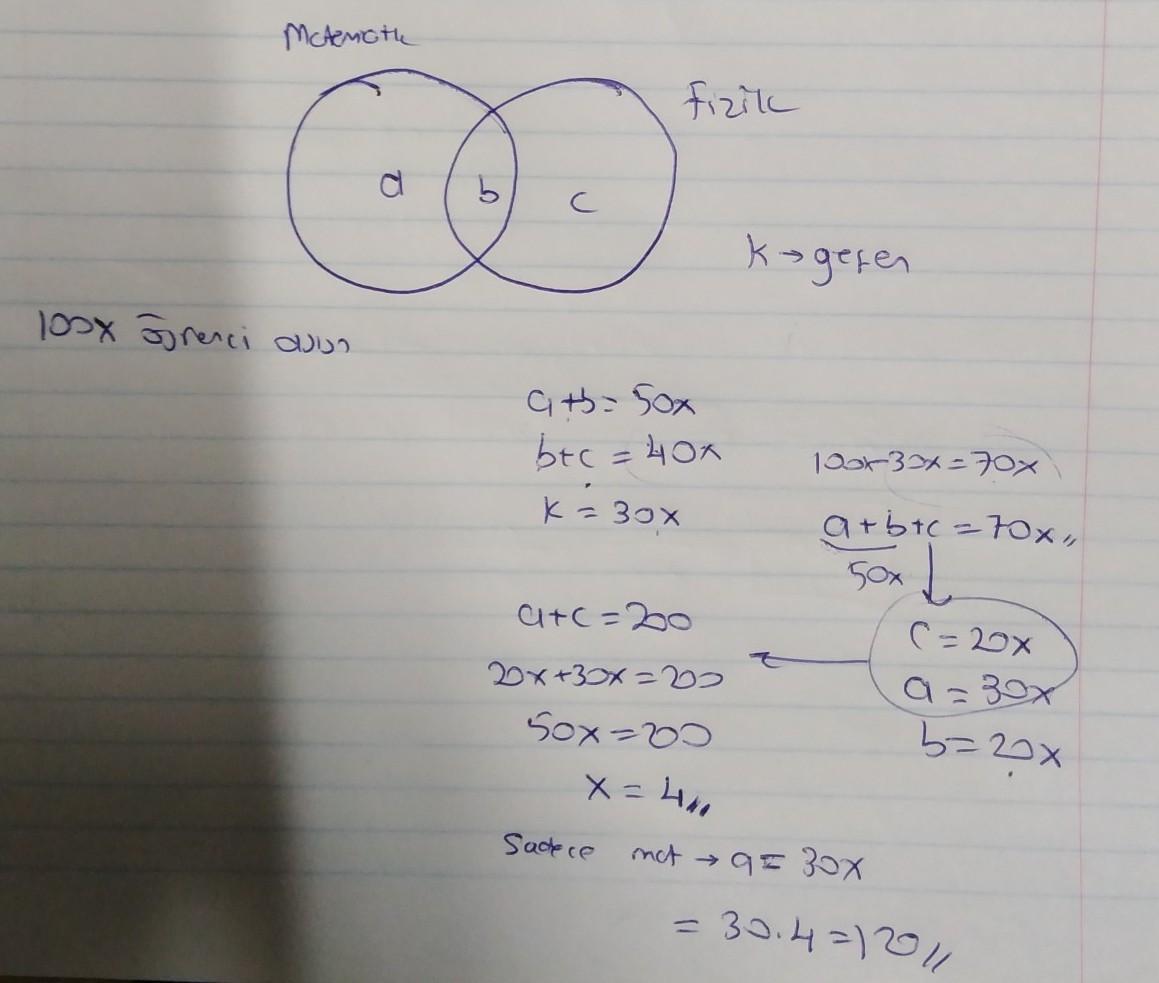 Matematik
Fizik
a b c
K → geçen
100x öğrenci olsun
a+b = 50x
b+c = 40x
100x-30x = 70x
K = 30x
a+b+c = 70x,,
50x
a+c = 200
c = 20x
20x+30x = 200
a = 30x
50x = 200
b = 20x
x = 4,,
Sadece mat → a = 30x
= 30.4 = 120,,